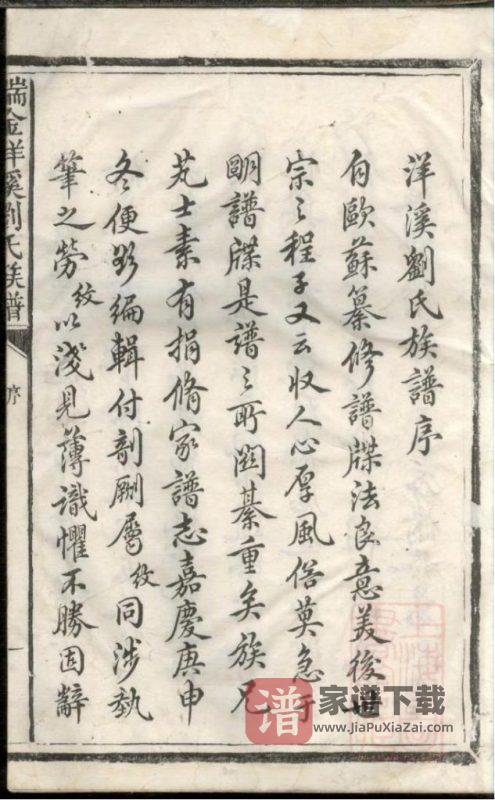 洋溪劉氏族譜序
自歐蘇纂修譜牒法良意美後世
宗之程子又云收人心厚風俗莫急于
明譜牒是譜之所關綦重矣族兄
芄士素有捐脩家譜志嘉慶庚申
冬便欲編輯付剞劂屬紋同涉執
筆之勞紋以淺見薄識懼不勝固辭
瑞金洋溪劉氏族譜
序
谱 家谱下载
www.JiaPuXiaZai.com